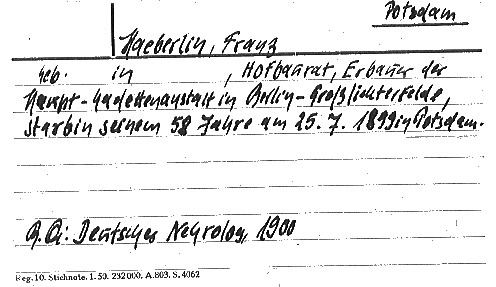 Potsdam
Haeberlin, Franz
geb. in , Hofbaurat, Erbauer der
Haupt-Kadettenanstalt in Berlin-Großlichterfelde,
starb in seinem 58 Jahre am 25. 7. 1899 in Potsdam.
Deutscher Nekrolog, 1900
Reg. 10. Stichnote. 1. 50. 232000. A. 803. S. 4062